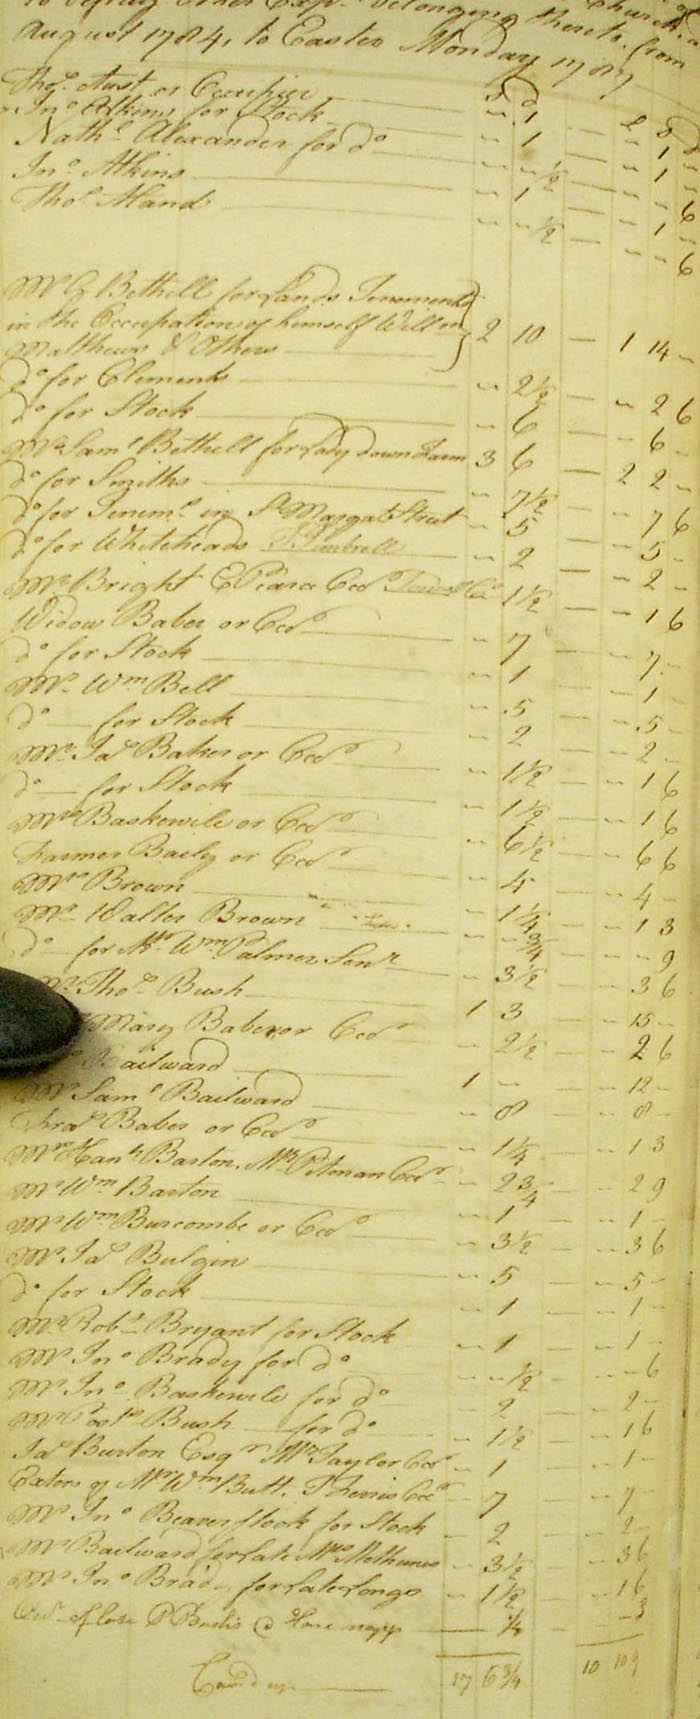 to defray other Exp.s belonging thereto. from
August 1784, to Easter Monday 1787
S d £ S d
Tho.s Aust or Occupier " 1 — " 1 "
Jn.o Atkins for Stock " 1 — " 1 "
Nath.l Alexander for d.o " " 1/2 — " " 6
Jn.o Atkins " 1 — " 1 "
Tho.s Aland " " 1/2 — " " 6
M.r G Bethell for Lands Tenements
in the Occupation of himself Will.m
Matthews & Others 2 10 — 1 14 "
d.o for Clements " 2 1/2 — " 2 6
d.o for Stock " 6 — " 6 "
M.r Sam.l Bethell for Lady down Farm 3 6 — 2 2 "
d.o for Smiths " 7 1/2 — " 7 6
d.o for Tenem.t in S.t Margats Street " 5 — " 5 "
d.o for Whiteheads T. Timbrell " 2 — " 2 "
M.r Bright E Pearce Occ.r " 1 1/2 — " 1 6
Widow Baber or Occ.r " 7 — " 7 "
d.o for Stock " 1 — " 1 "
M.r W.m Bell " 5 — " 5 "
d.o for Stock " 2 — " 2 "
M.r Ja.s Baker or Occ.r " 1 1/2 — " 1 6
d.o for Stock " 1 1/2 — " 1 6
M.rs Baskervile or Occ.r " 6 1/2 — " 6 6
Farmer Baily or Occ.r " 4 — " 4 "
M.rs Brown " 1 1/4 — " 1 3
M.r Walter Brown " " 3/4 — " " 9
d.o for M.r W.m Palmer Sen.r " 3 1/2 — " 3 6
M.r Tho.s Bush 1 3 — " 15 "
Mary Baber or Occ.r " 2 1/2 — " 2 6
Bailward 1 " — " 12 "
M.r Sam.l Bailward " 8 — " 8 "
Fra.s Baber or Occ.r " 1 1/4 — " 1 3
M.rs Han.h Barton. M.r Pitman Occ.r " 2 3/4 — " 2 9
M.r W.m Barton " 1 — " 1 "
M.r W.m Burcombe or Occ.r " 3 1/2 — " 3 6
M.r Ja.s Bulgin " 5 — " 5 "
d.o for Stock " 1 — " 1 "
M.r Rob.t Bryant for Stock " 1 — " 1 "
M.r Jn.o Brady for d.o " " 1/2 — " " 6
M.r Jn.o Baskervile for d.o " 2 — " 2 "
Bush for d.o " 1 1/2 — " 1 6
Ja.s Burton Esq.r M.r Taylor Occ.r " 1 — " 1 "
Exters of M.r W.m Butt. T Lewis Occ.r " 7 — " 7 "
M.r Jn.o Beaverstock for Stock " 2 — " 2 "
M.r Bailward for late M.rs Methuens " 3 1/2 — " 3 6
M.r Jn.o Brady for late Longs " 1 1/2 — " 1 6
of late 1/4 — " 3
Carr.d up 17 6 3/4 10 10 9